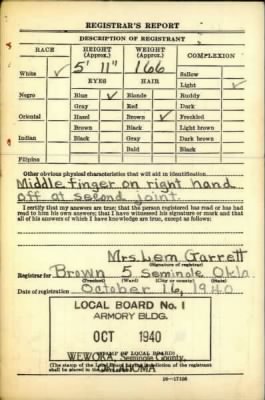 REGISTRAR'S REPORT
DESCRIPTION OF REGISTRANT
RACE HEIGHT (Approx.) WEIGHT (Approx.) COMPLEXION
5' 11" 166
White ✓ Sallow
EYES HAIR Light ✓
Negro Blue ✓ Blonde Ruddy
Gray Red Dark
Oriental Hazel Brown ✓ Freckled
Brown Black Light brown
Indian Black Gray Dark brown
Bald Black
Filipino
Other obvious physical characteristics that will aid in identification
Middle finger on right hand
off at second joint.
I certify that my answers are true; that the person registered has read or has had
read to him his own answers; that I have witnessed his signature or mark and that
all of his answers of which I have knowledge are true, except as follows:
Mrs. Lem Garrett
(Signature of registrar)
Registrar for Brown 5 Seminole Okla.
(Precinct) (Ward) (City or county) (State)
Date of registration October 16, 1940
LOCAL BOARD No. 1
ARMORY BLDG.
OCT 1940
(STAMP OF LOCAL BOARD)
WEWOKA, Seminole County,
OKLAHOMA
(The stamp of the Local Board having jurisdiction of the registrant
shall be placed in the
16—17105